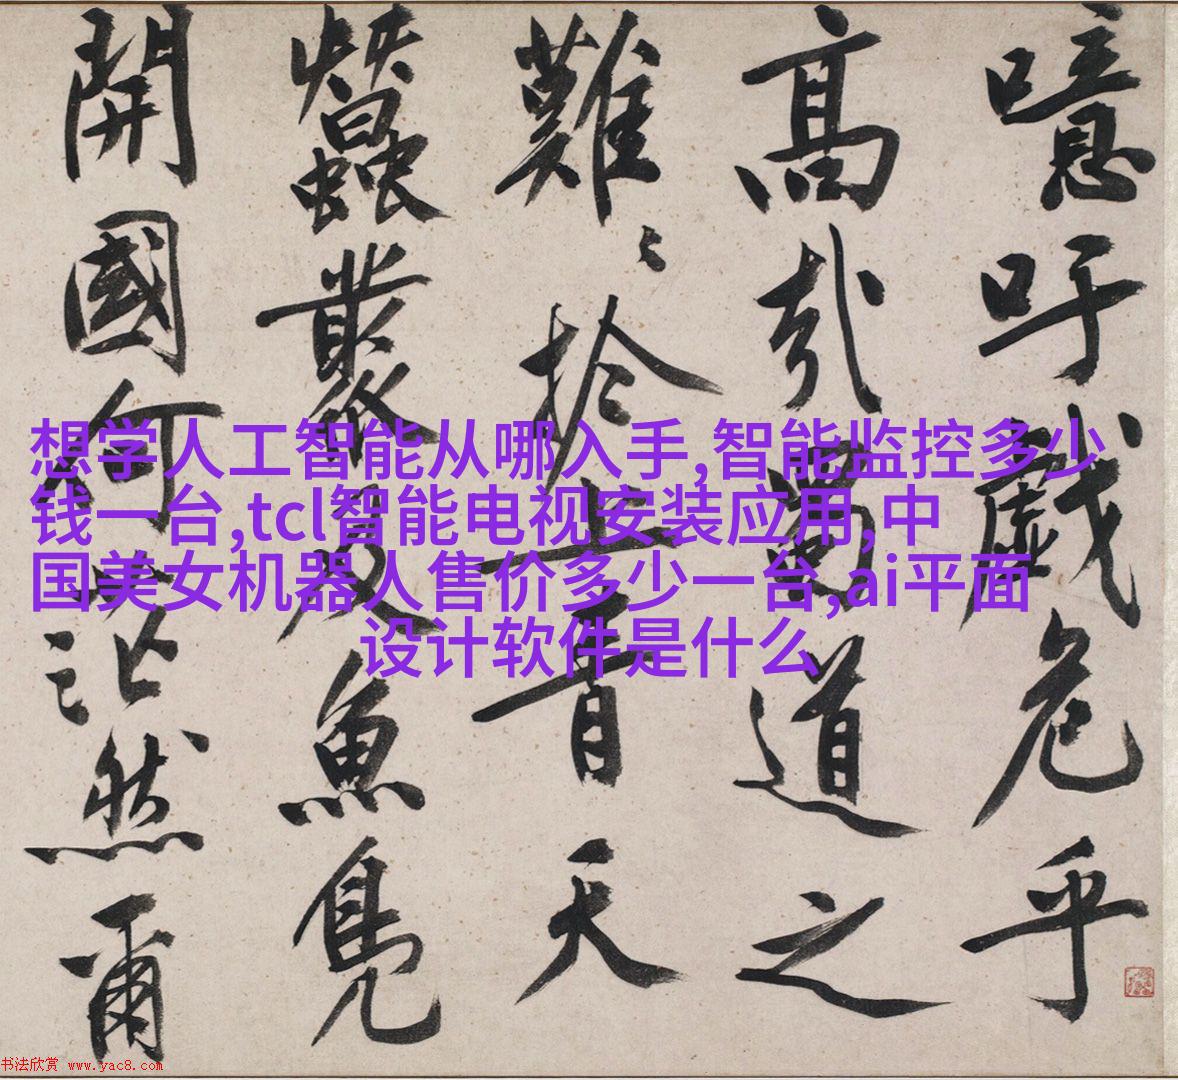 噫吁戲危乎
高哉蜀道之
難〻於上青天
蠶叢及魚鳧
開國何茫然爾
想学人工智能从哪入手,智能监控多少
钱一台,tcl智能电视安装应用,中
国美女机器人售价多少一台,ai平面
设计软件是什么
书法欣赏 www.yac8.com